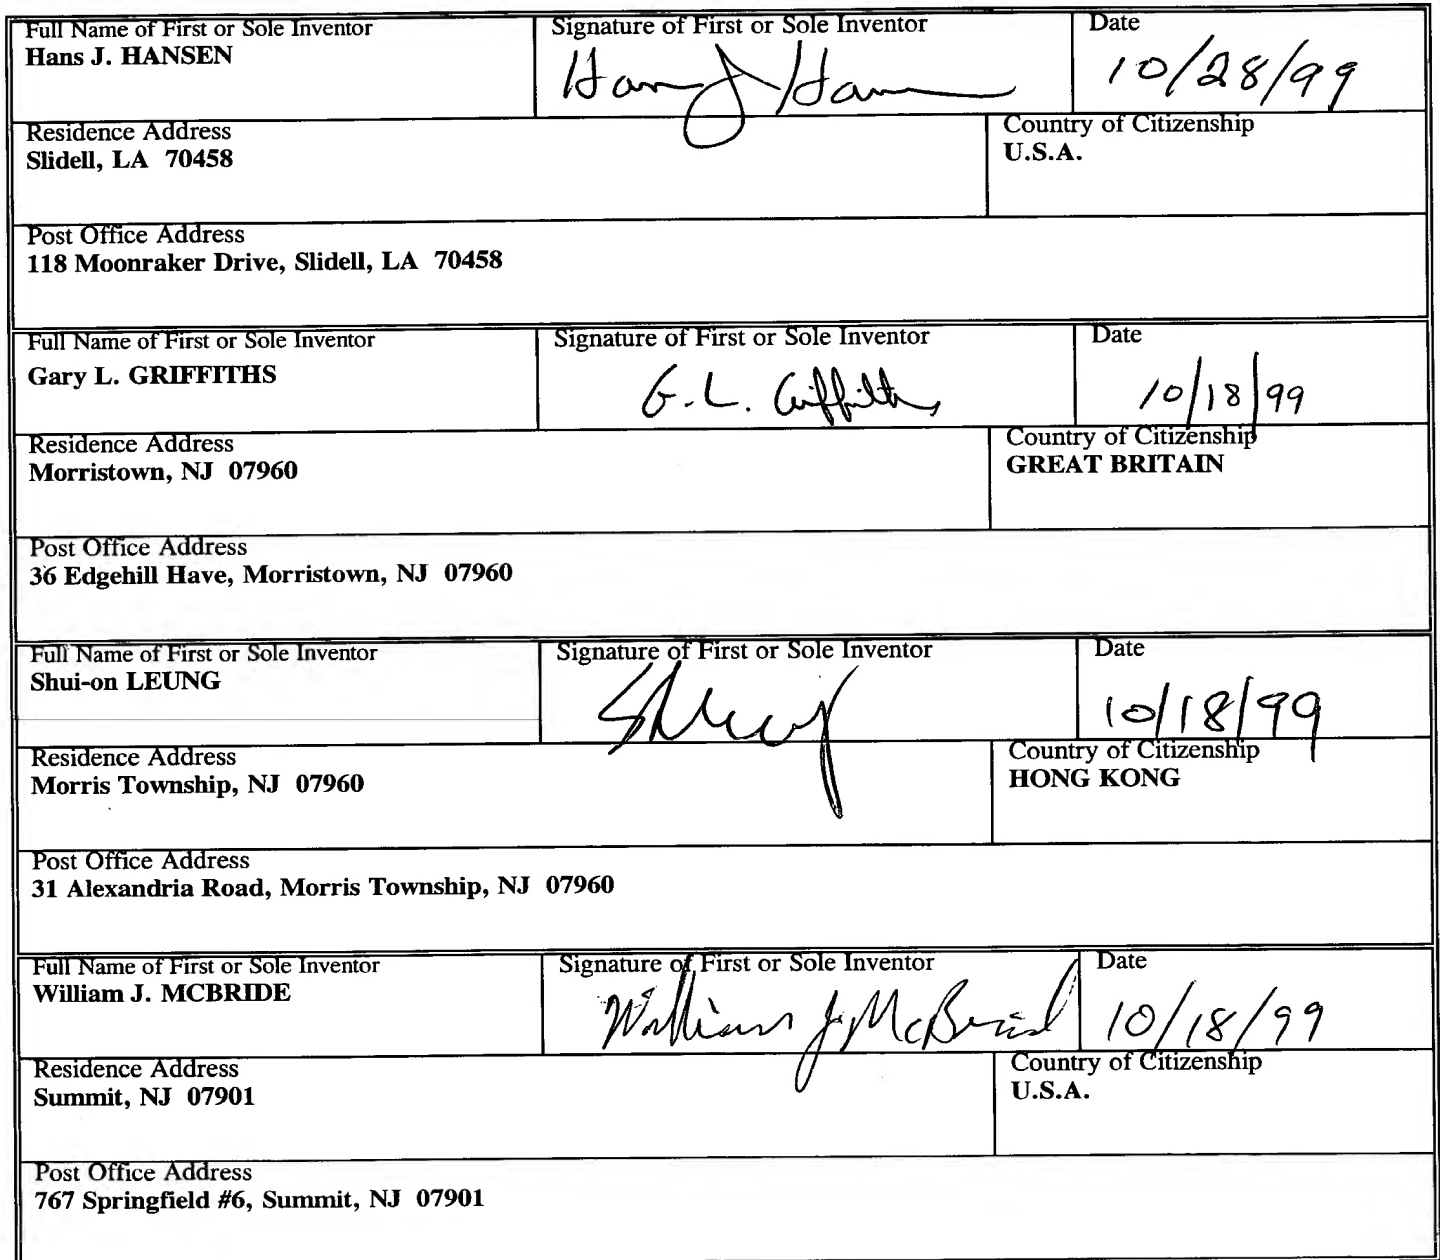 Full Name of First or Sole Inventor
Hans J. HANSEN
Signature of First or Sole Inventor
Hans J Hansen
Date
10/28/99
Residence Address
Slidell, LA 70458
Country of Citizenship
U.S.A.
Post Office Address
118 Moonraker Drive, Slidell, LA 70458
Full Name of First or Sole Inventor
Gary L. GRIFFITHS
Signature of First or Sole Inventor
G. L. Griffiths
Date
10/18/99
Residence Address
Morristown, NJ 07960
Country of Citizenship
GREAT BRITAIN
Post Office Address
36 Edgehill Have, Morristown, NJ 07960
Full Name of First or Sole Inventor
Shui-on LEUNG
Signature of First or Sole Inventor
Date
10/18/99
Residence Address
Morris Township, NJ 07960
Country of Citizenship
HONG KONG
Post Office Address
31 Alexandria Road, Morris Township, NJ 07960
Full Name of First or Sole Inventor
William J. MCBRIDE
Signature of First or Sole Inventor
William J. McBride
Date
10/18/99
Residence Address
Summit, NJ 07901
Country of Citizenship
U.S.A.
Post Office Address
767 Springfield #6, Summit, NJ 07901